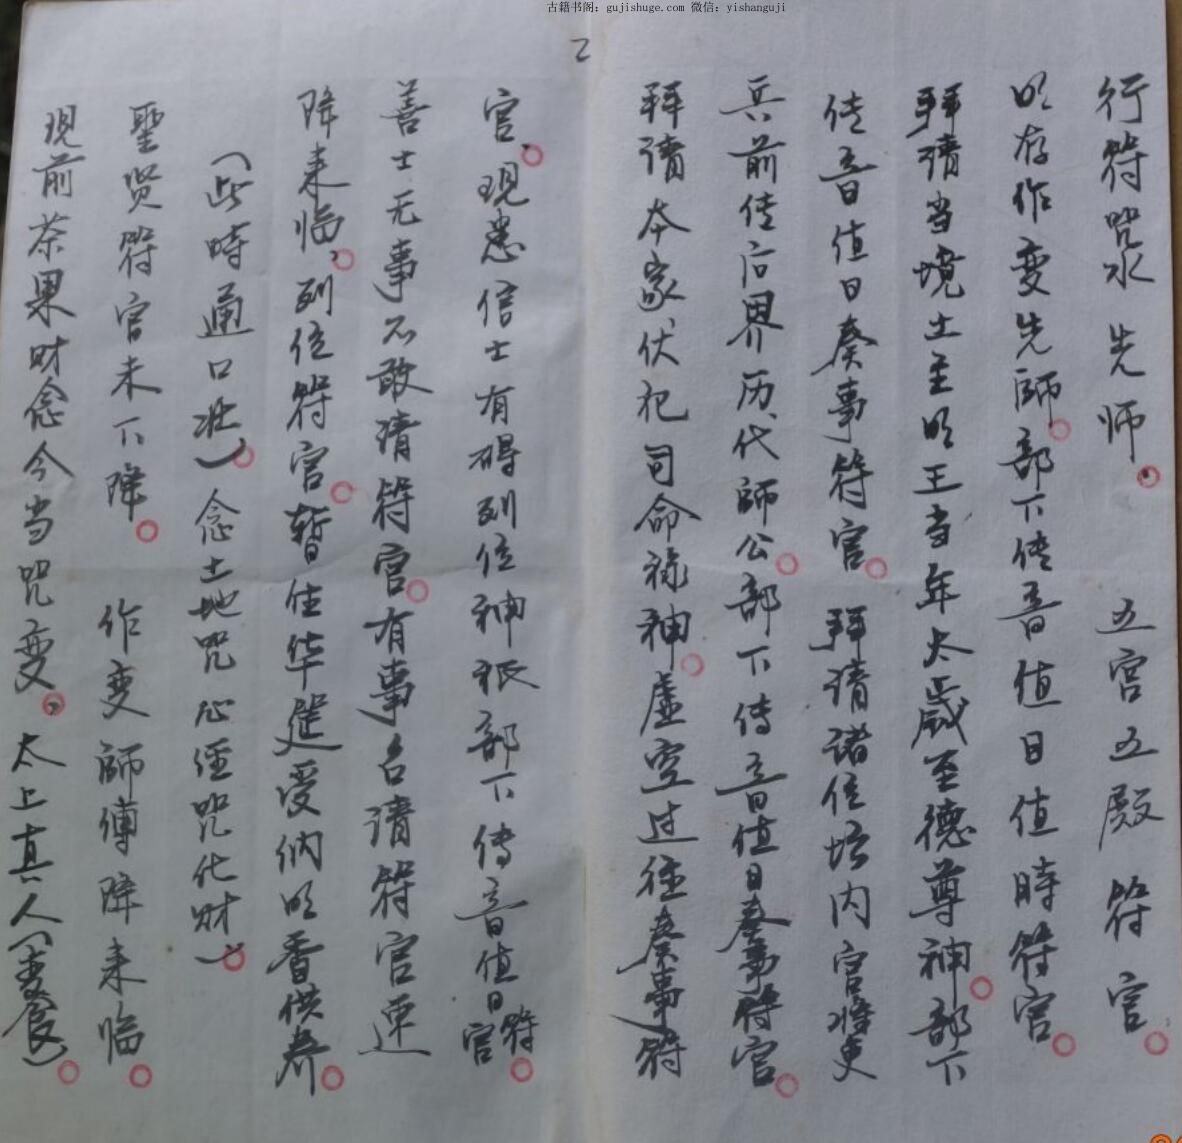 古籍书阁：gujishuge.com 微信：yishanguji
2
行符咒水先师。五宫五殿符官。
以存作变先師。部下传音值日值時符官。
拜请当境土主明王当年太歲至德尊神。部下
传音值日奏事符官。拜请诸位坛内官将吏
兵前传后界历代師公。部下传音值日奏事符官。
拜请本家伏祀司命福神。虚空过往奏事符
官。現悬信士有碍列位神祇部下传音值日符官。
善士无事不敢请符官。有事召请符官速
降来临。列位符官。暂住华筵受纳明香供养。
（此時通口壮）。念土地咒心经咒化财）。
聖贤符官未下降。作变師傅降来临。
現前茶果财念今当咒变。太上真人（变食）。